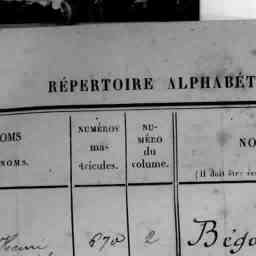 RÉPERTOIRE ALPHABÉT
OMS
NOMS.
NUMÉROS
ma-
tricules.
NU-
MÉRO
du
volume.
NO
(Il doit être
670 2
Bégo